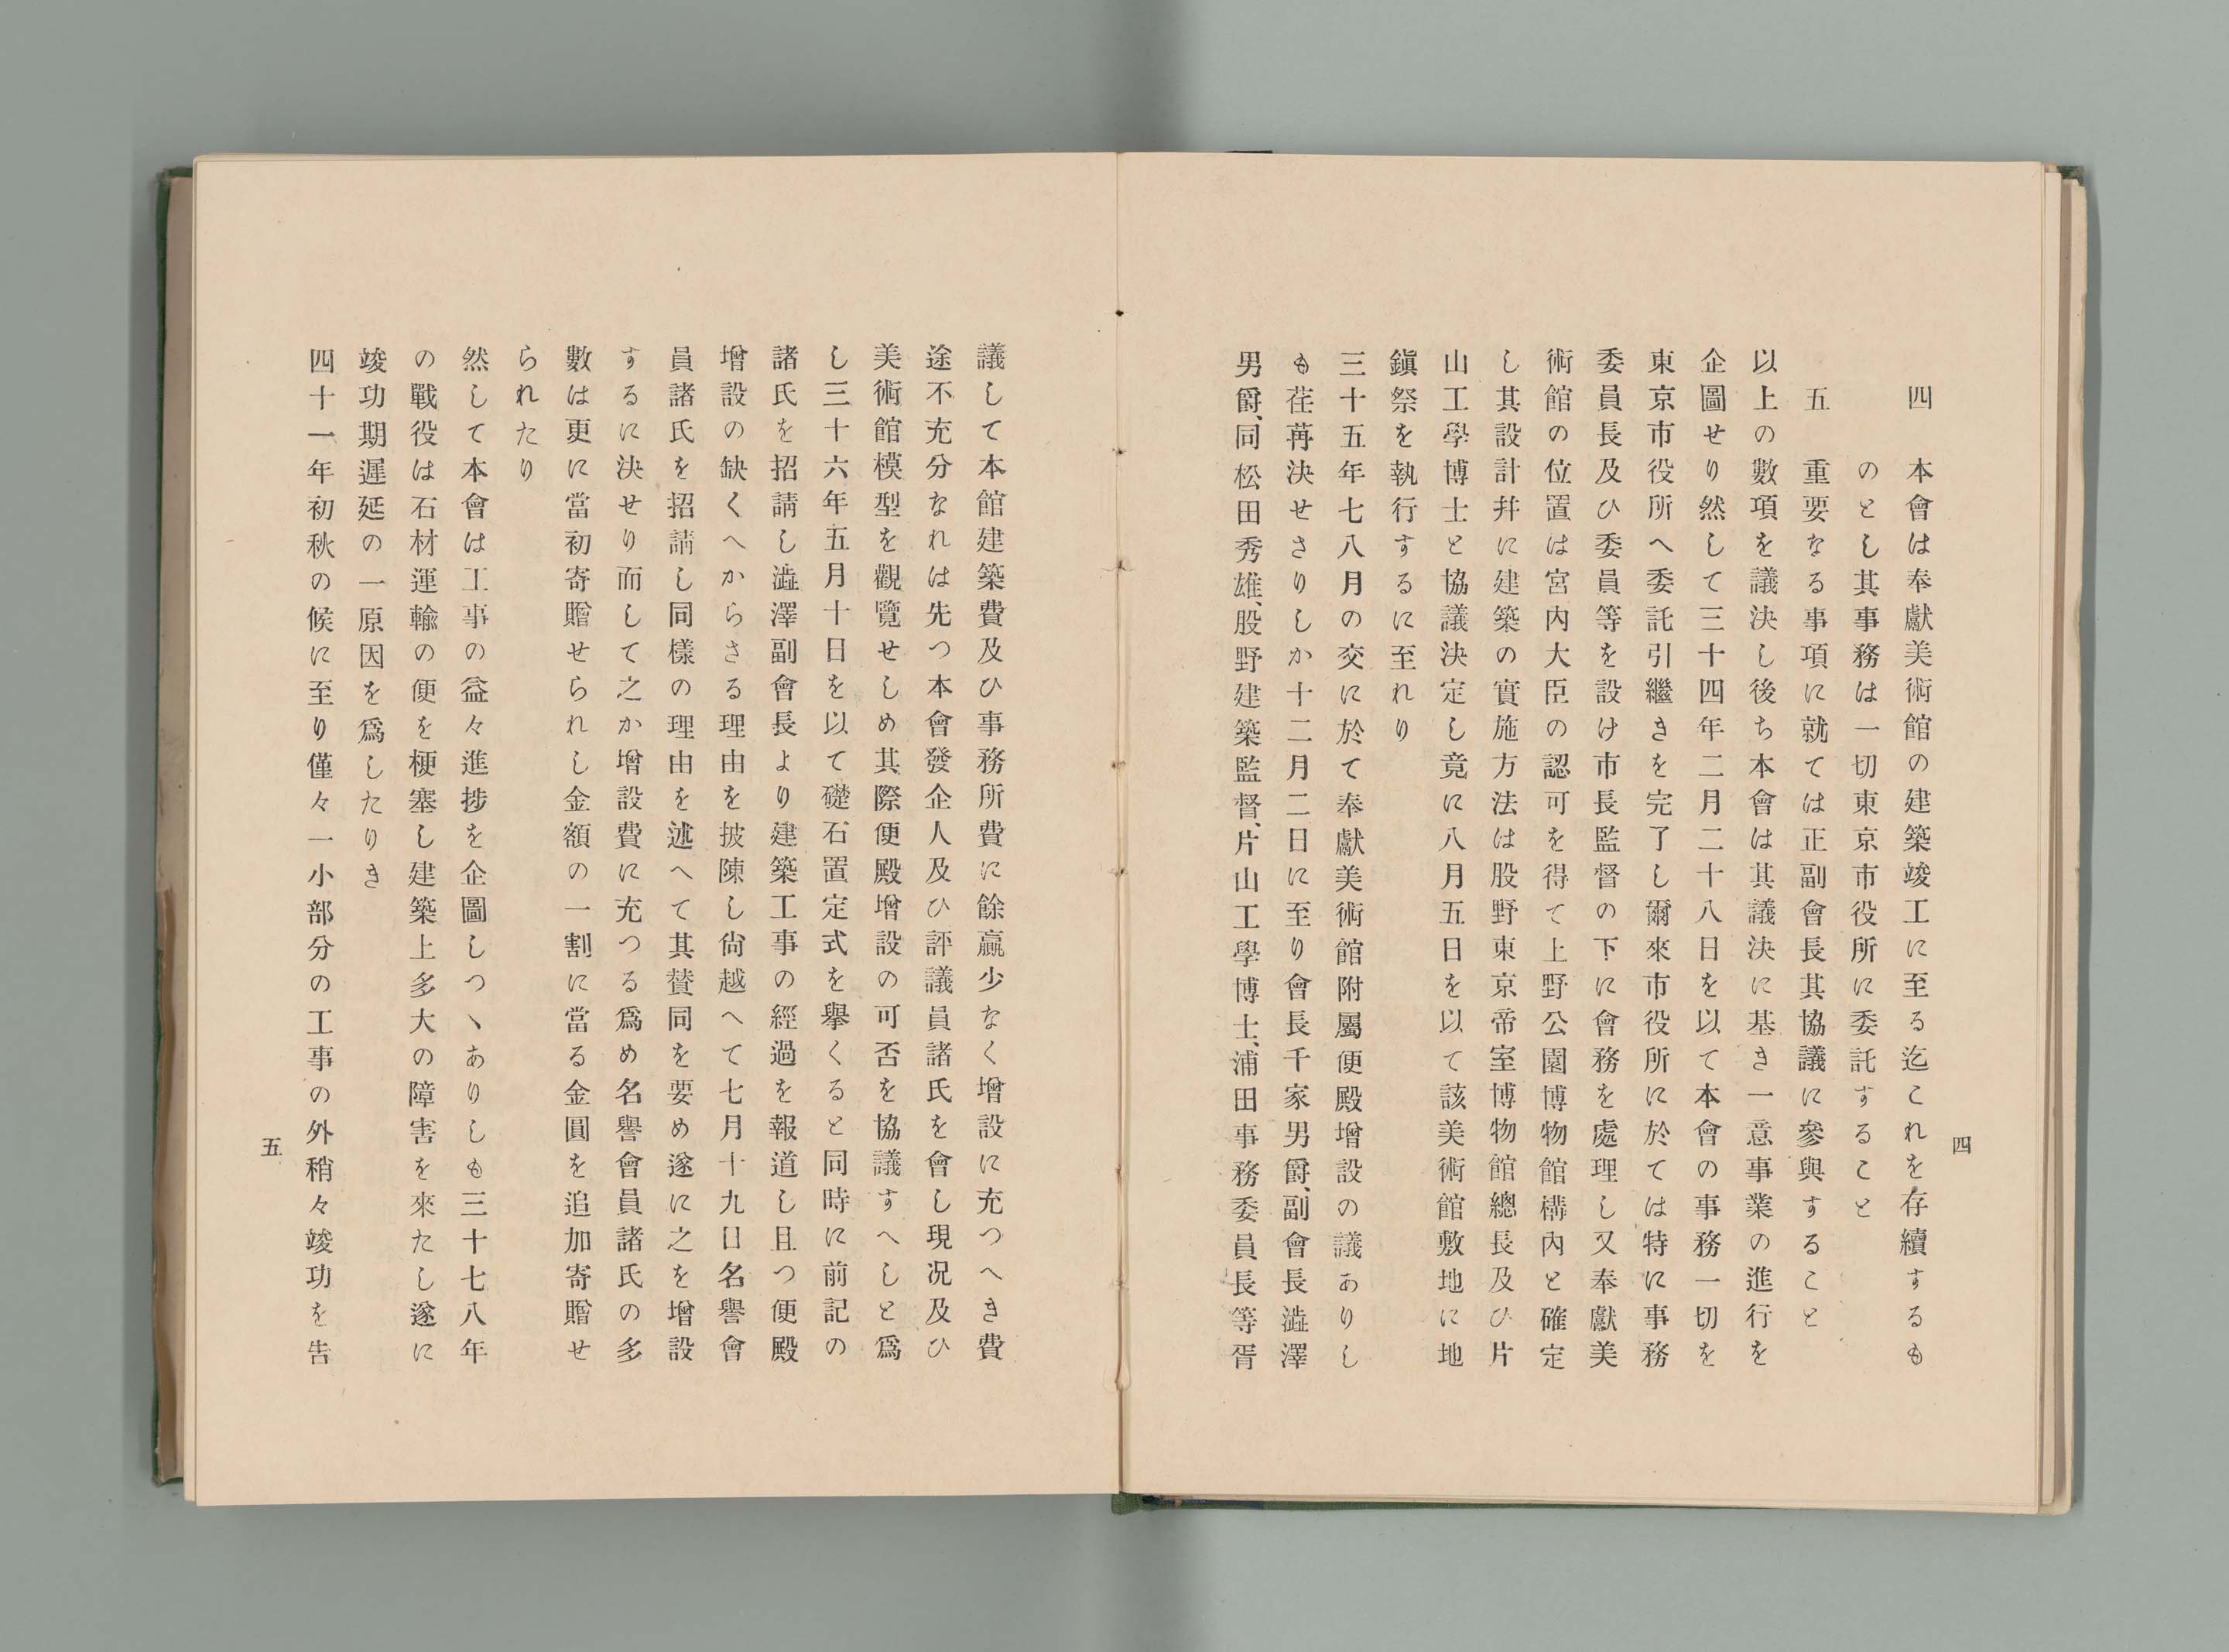 四
四　本會は奉獻美術館の建築竣工に至る迄これを存續するも
のとし其事務は一切東京市役所に委託すること
五　重要なる事項に就ては正副會長其協議に參與すること
以上の數項を議決し後ち本會は其議決に基き一意事業の進行を
企圖せり然して三十四年二月二十八日を以て本會の事務一切を
東京市役所へ委託引繼きを完了し爾來市役所に於ては特に事務
委員長及ひ委員等を設け市長監督の下に會務を處理し又奉獻美
術館の位置は宮內大臣の認可を得て上野公園博物館構內と確定
し其設計幷に建築の實施方法は股野東京帝室博物館總長及ひ片
山工學博士と協議決定し竟に八月五日を以て該美術館敷地に地
鎭祭を執行するに至れり
三十五年七八月の交に於て奉獻美術館附屬便殿增設の議ありし
も荏苒決せさりしか十二月二日に至り會長千家男爵、副會長澁澤
男爵、同松田秀雄、股野建築監督、片山工學博士、浦田事務委員長等胥
議して本館建築費及ひ事務所費に餘贏少なく增設に充つへき費
途不充分なれは先つ本會發企人及ひ評議員諸氏を會し現況及ひ
美術館模型を觀覽せしめ其際便殿增設の可否を協議すへしと爲
し三十六年五月十日を以て礎石置定式を擧くると同時に前記の
諸氏を招請し澁澤副會長より建築工事の經過を報道し且つ便殿
增設の缺くへからさる理由を披陳し尙越へて七月十九日名譽會
員諸氏を招請し同樣の理由を述へて其賛同を要め遂に之を增設
するに決せり而して之か增設費に充つる爲め名譽會員諸氏の多
數は更に當初寄贈せられし金額の一割に當る金圓を追加寄贈せ
られたり
然して本會は工事の益々進捗を企圖しつゝありしも三十七八年
の戰役は石材運輸の便を梗塞し建築上多大の障害を來たし遂に
竣功期遲延の一原因を爲したりき
四十一年初秋の候に至り僅々一小部分の工事の外稍々竣功を告
五